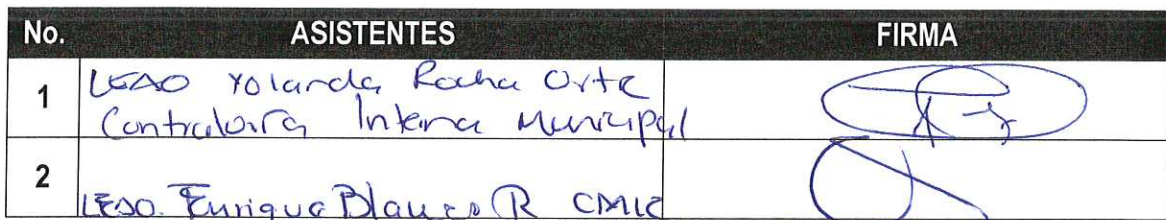 No. ASISTENTES FIRMA
1 LEAO Yolanda Rocha Orte
Contraloría Interna Municipal
2 LEAO. Enrique Blanco R CMIC